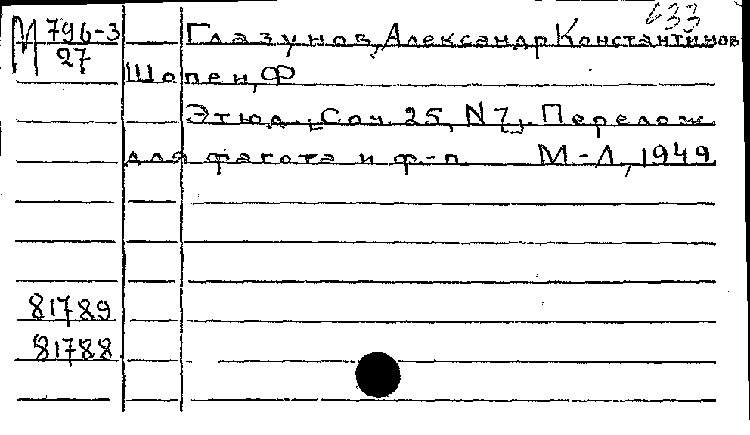 633
М 796-3
27
Глазунов, Александр Константинов
Шопен, Ф
Этюд, Соч. 25, N 7, Перелож.
для фагота и ф.-п. М-Л, 1949
81789
81788